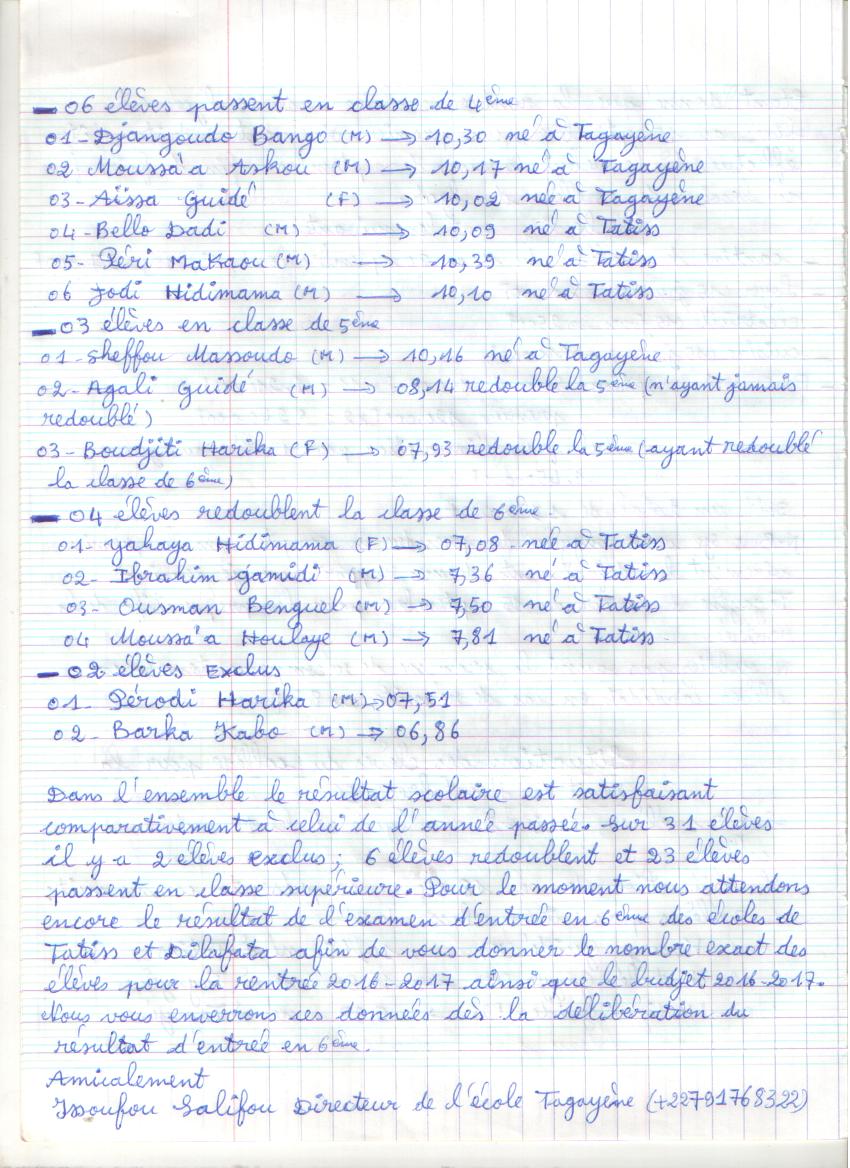 - 06 élèves passent en classe de 4ème
01 - Djangoudo Bango (M) → 10,30 né à Tagayène
02 Moussa'a Askou (M) → 10,17 né à Tagayène
03 - Aïssa Guidé (F) → 10,02 née à Tagayène
04 - Bello Dadi (M) → 10,09 né à Tatiss
05 - Péri Makaou (M) → 10,39 né à Tatiss
06 Jodi Hidimama (M) → 10,10 né à Tatiss
- 03 élèves en classe de 5ème
01 - Sheffou Massoudo (M) → 10,16 né à Tagayène
02 - Agali Guidé (M) → 08,14 redouble la 5ème (n'ayant jamais
redoublé)
03 - Boudjiti Harika (F) → 07,93 redouble la 5ème (ayant redoublé
la classe de 6ème)
- 04 élèves redoublent la classe de 6ème.
01 - Yahaya Hidimama (F) → 07,08 - née à Tatiss
02 - Ibrahim gamidi (M) → 7,36 né à Tatiss
03 - Ousman Benguel (M) → 7,50 né à Tatiss
04 Moussa'a Houlaye (M) → 7,81 né à Tatiss.
- 02 élèves Exclus
01 - Pérodi Harika (M) → 07,51
02 - Barka Kabo (M) → 06,86
Dans l'ensemble le résultat scolaire est satisfaisant
comparativement à celui de l'année passée. Sur 31 élèves
il y a 2 élèves exclus ; 6 élèves redoublent et 23 élèves
passent en classe supérieure. Pour le moment nous attendons
encore le résultat de l'examen d'entrée en 6ème des écoles de
Tatiss et Dilafata afin de vous donner le nombre exact des
élèves pour la rentrée 2016-2017 ainsi que le budjet 2016-2017.
Nous vous enverrons ces données dès la délibération du
résultat d'entrée en 6ème.
Amicalement
Issoufou Salifou Directeur de l'école Tagayène (+22791768322)